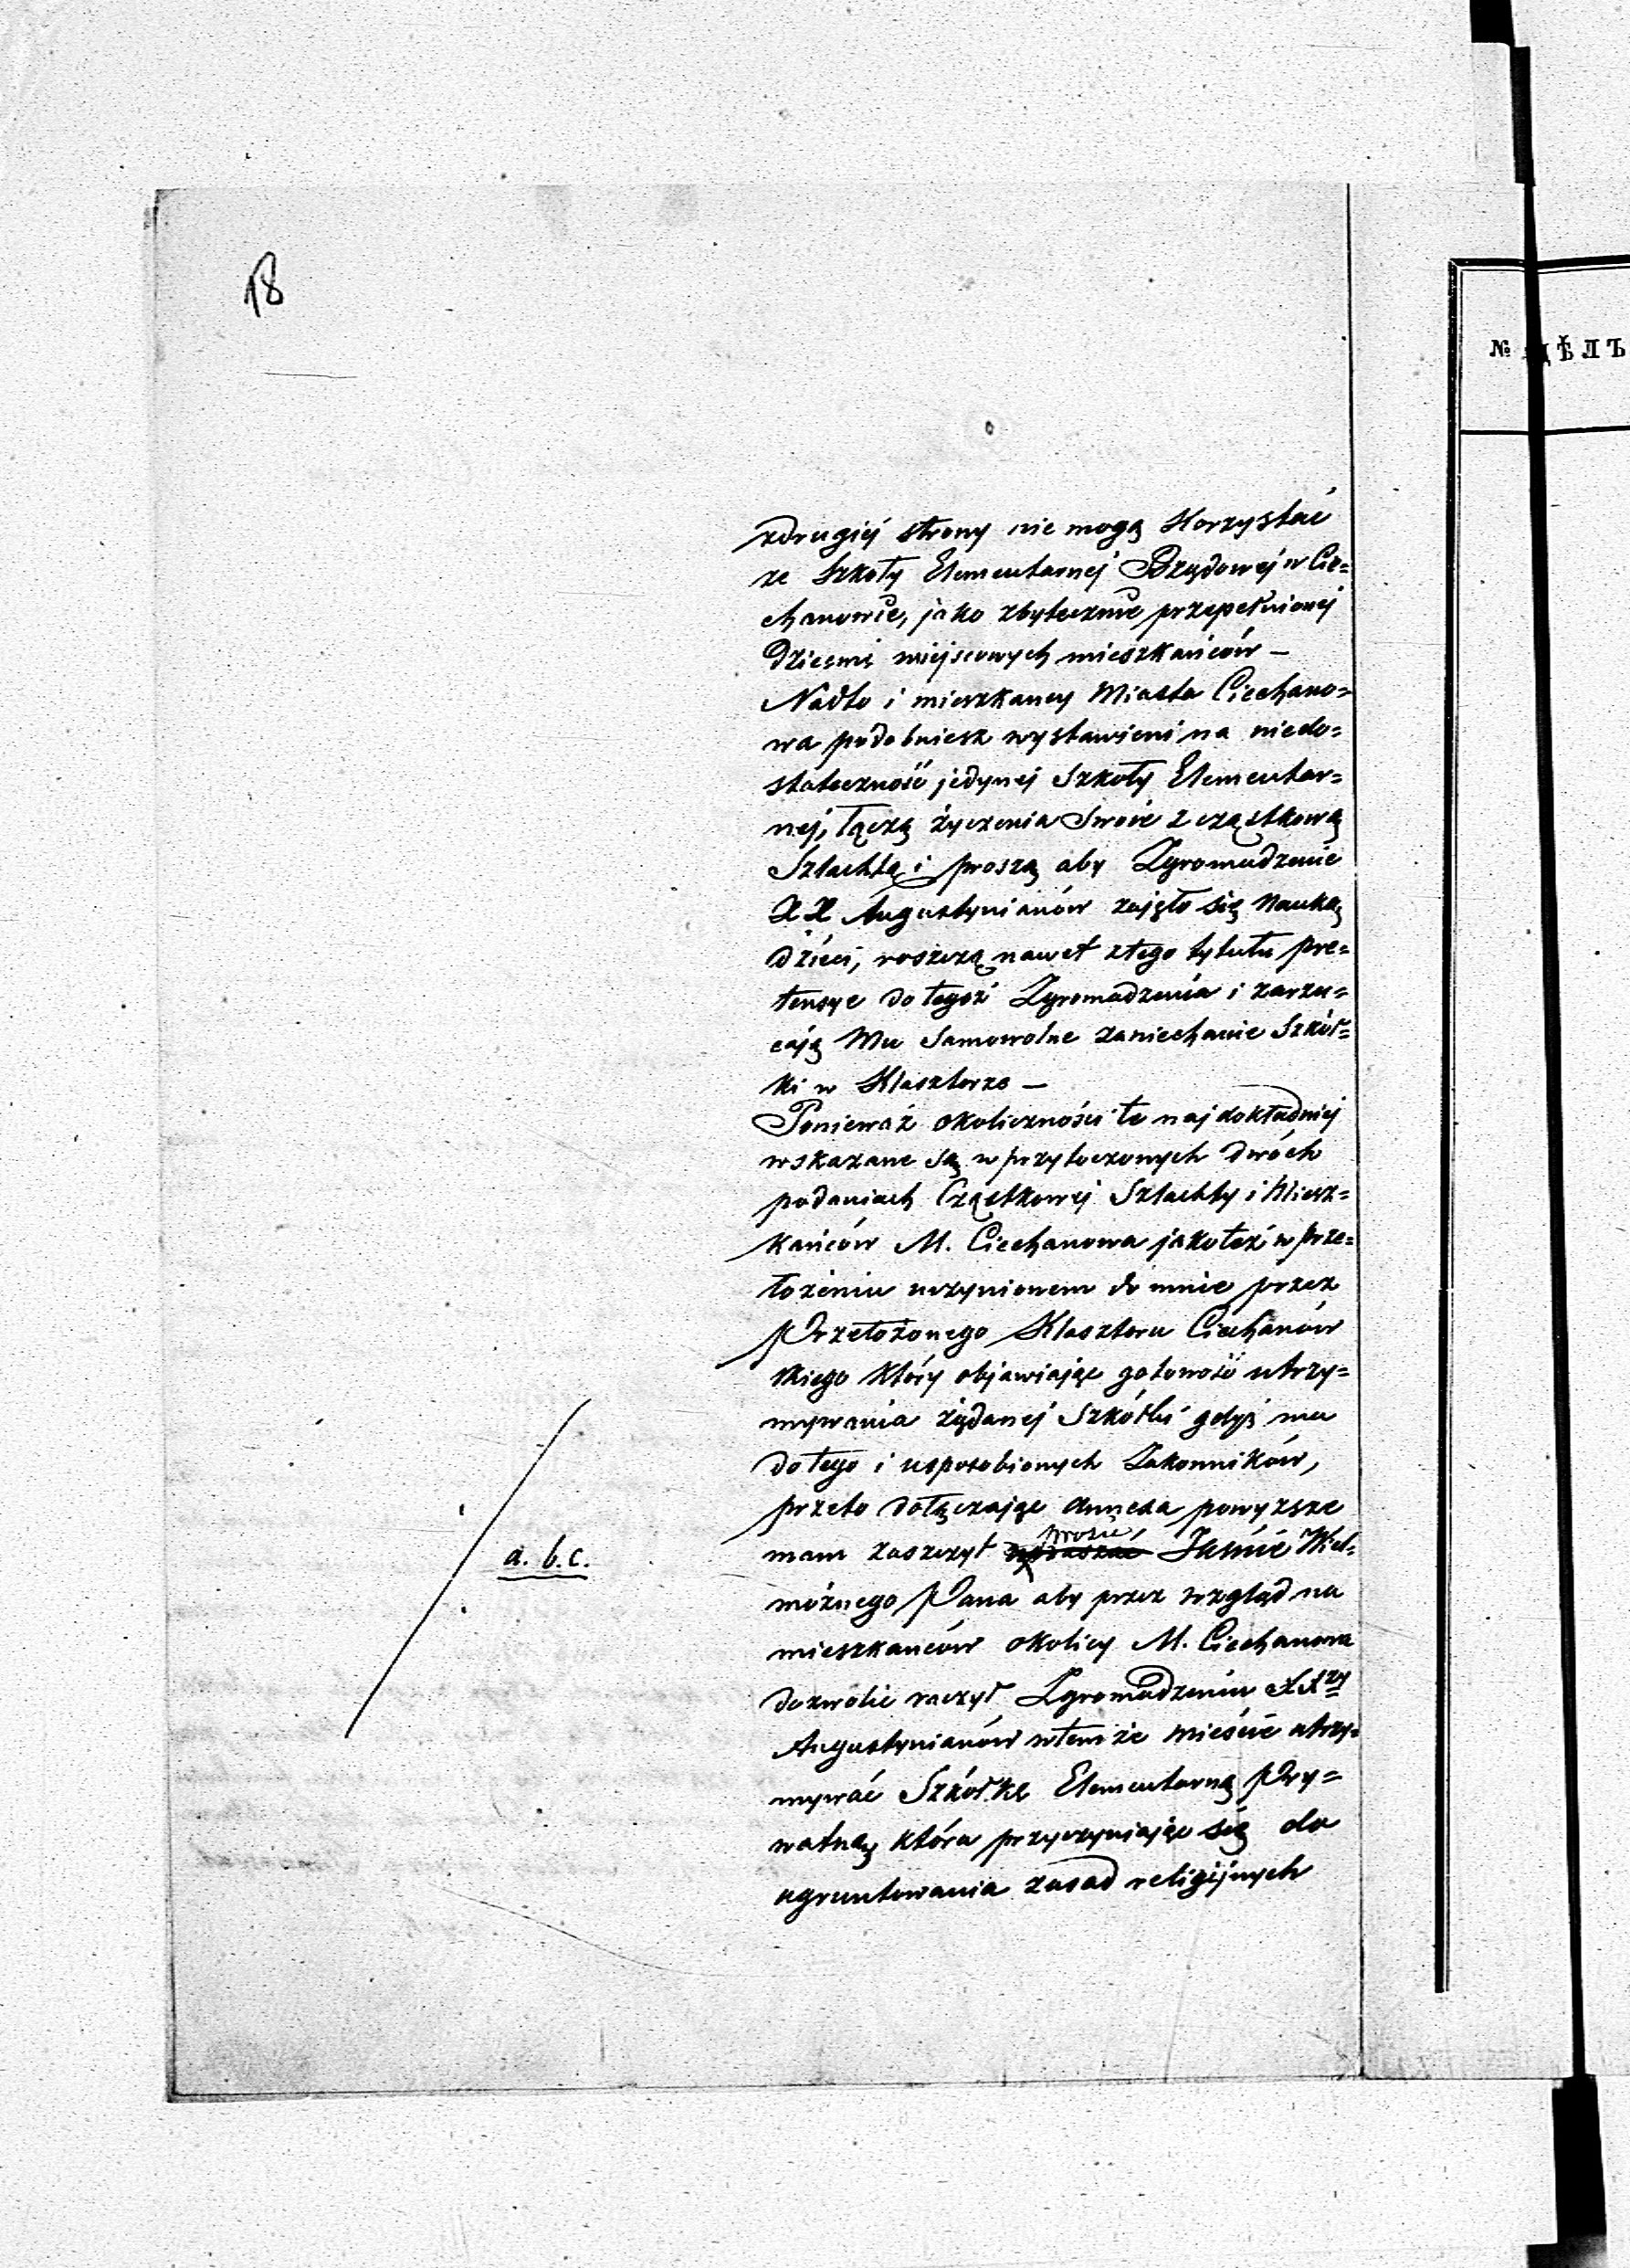 18
№ ДѢЛЪ
zdrugiej strony nie mogą Korzystać
ze Szkoły Elementarnej Rządowej w Cie=
chanowie, jako zbytecznie przepełnionej
Dziećmi miejscowych mieszkańców —
Nadto i mieszkancy Miasta Ciechano=
wa podobniesz wystawieni na niedo=
stateczność jedynej Szkoły Elementar=
nej, łączą życzenia Swoie z cząstkową
Szlachtą i proszą aby Zgromadzenie
XX Augustynianów zajęło się Nauką
dzieci, roszczą nawet ztego tytułu pre=
tensye do tegoż Zgromadzenia i zarzu=
cają Mu Samowolne zaniechanie Szkół=
ki w Klasztorze —
Ponieważ okoliczności te najdokładniej
wskazane są w przytoczonych dwóch
podaniach Cząstkowej Szlachty i Miesz=
kańców M. Ciechanowa jakoteż w prze=
łożeniu uczynionem do mnie przez
Przełożonego Klasztoru Ciechanów
skiego który objawiając gotowość utrzy=
mywania żądanej Szkółki gdyż ma
do tego i usposobionych Zakonników,
przeto dołączając annexa powyższe
a. b. c.
mam zaszczyt upraszać prosić Jaśnie Wiel=
możnego Pana aby przez wzgląd na
mieszkańców okolicy M. Ciechanowa
dozwolić raczył Zgromadzeniu XXzy
Augustynianów wtemże mieście utrzy=
mywać Szkółkę Elementarną Pry=
watną która przyczyniając się do
ugruntowania zasad religijnych